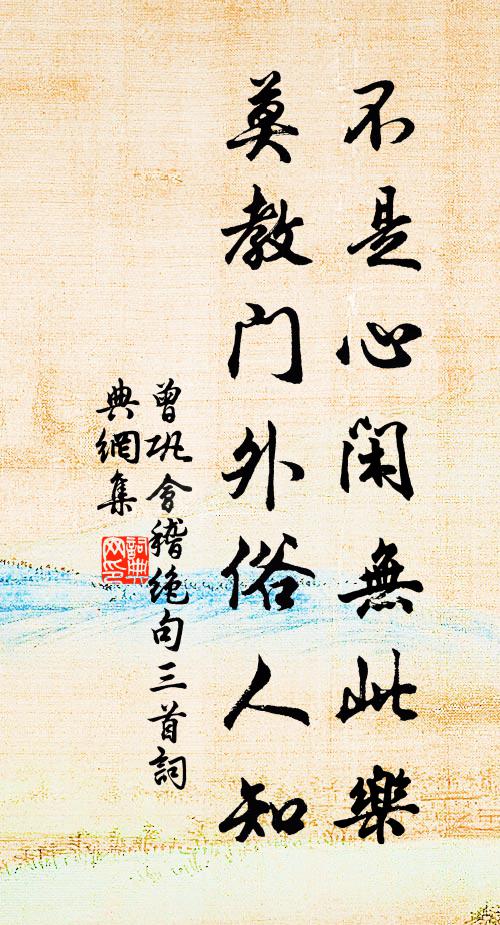 不是心闲無此樂
莫教门外俗人知
曾巩會稽绝句三首詞
典網集
詞典
网印